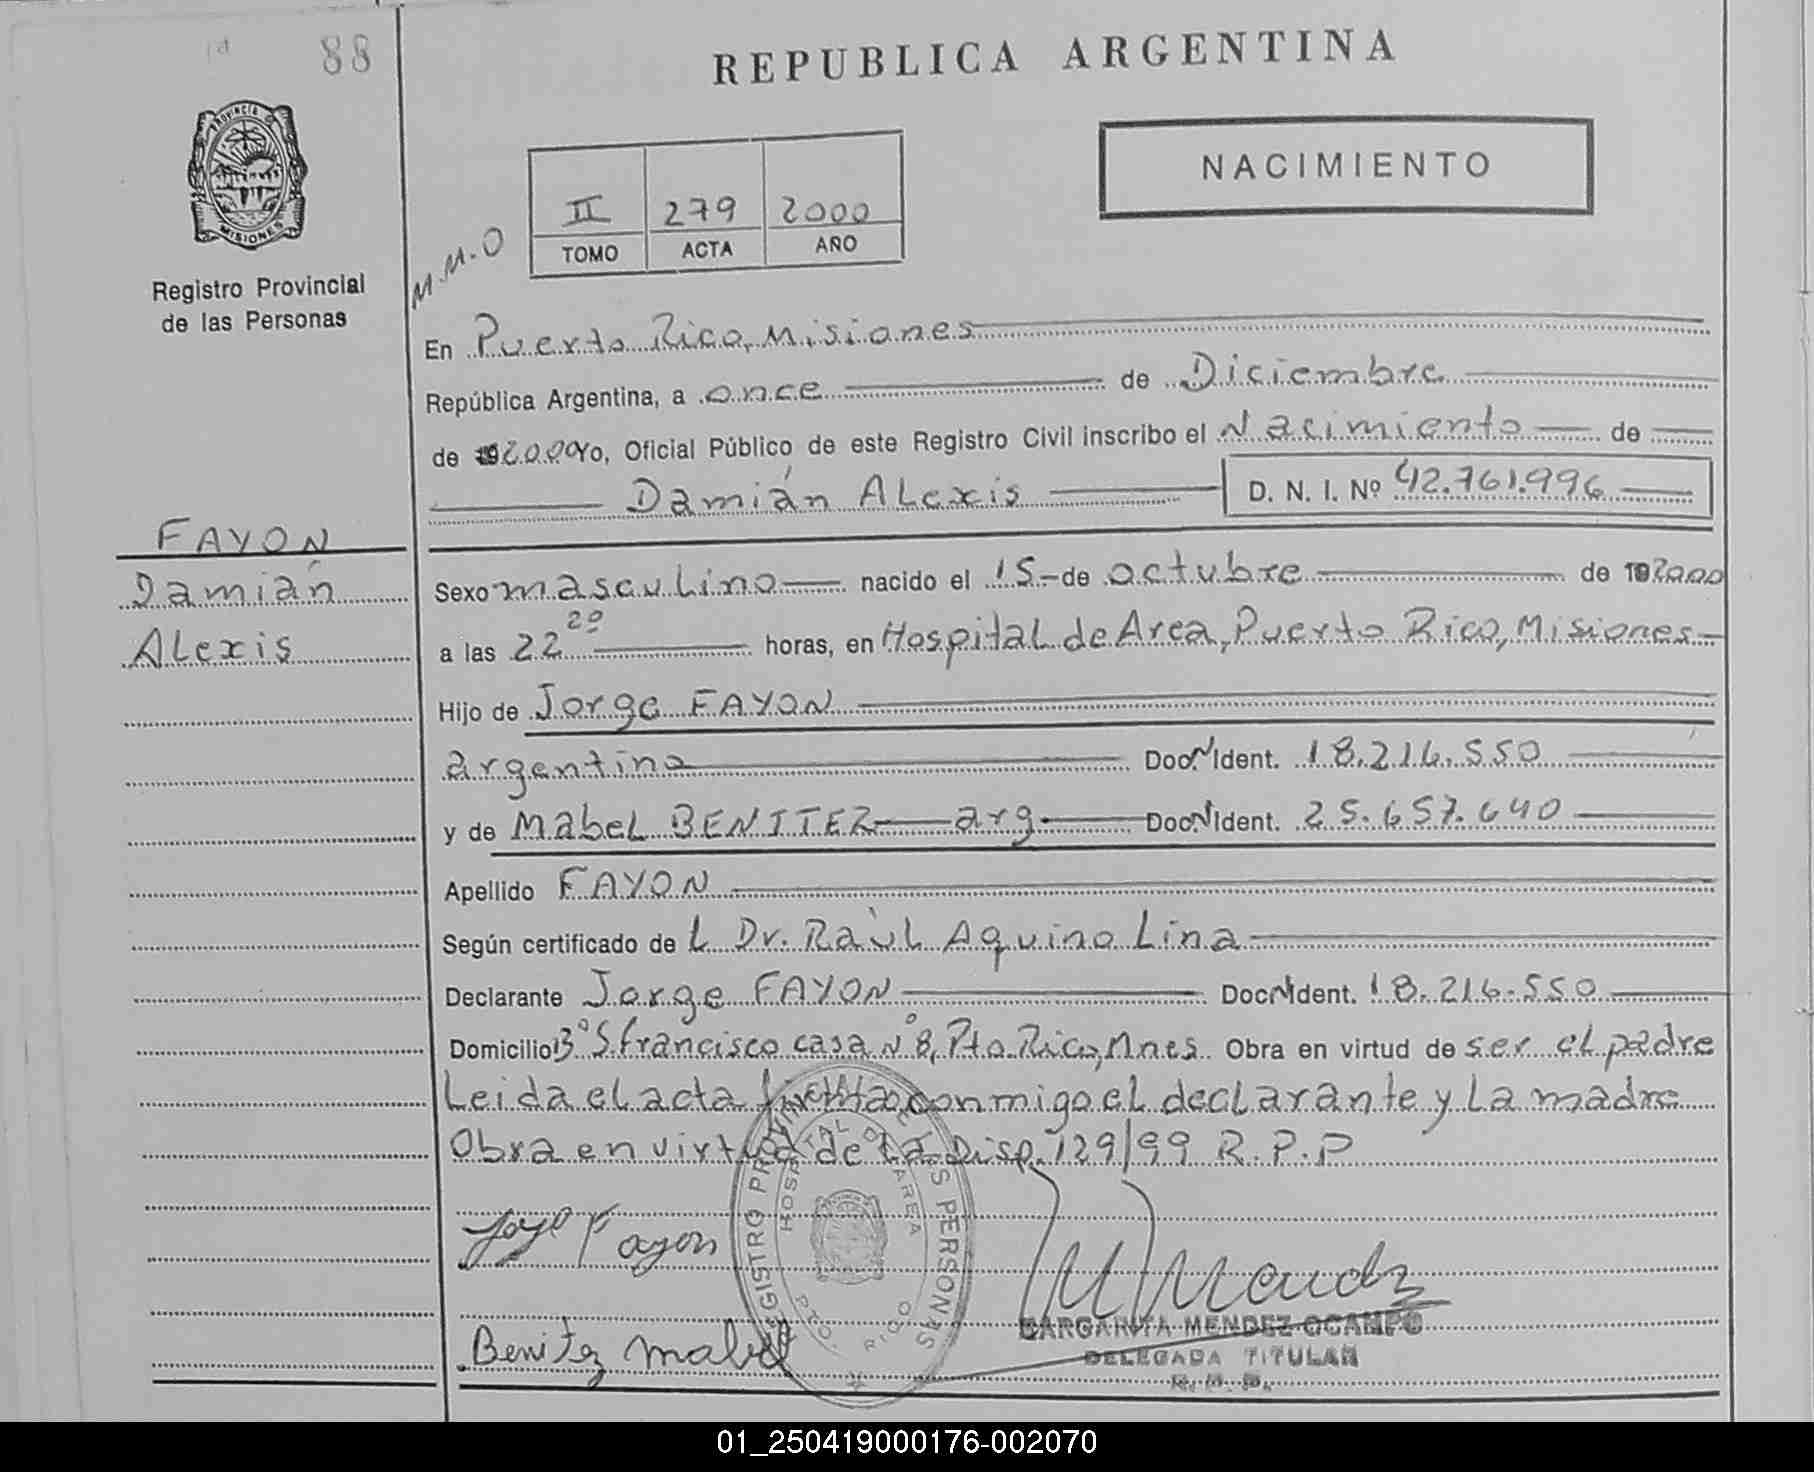 88
REPUBLICA ARGENTINA
PROVINCIA DE
MISIONES
NACIMIENTO
II 279 2000
TOMO ACTA AÑO
M.M.O
Registro Provincial
de las Personas
En Puerto Rico, Misiones
República Argentina, a once de Diciembre
de 2000 Yo, Oficial Público de este Registro Civil inscribo el Nacimiento de
Damián ALexis D. N. I. Nº 42.761.996
FAYON
Damián
ALexis
Sexo mascuLino nacido el 15 de octubre de 2000
a las 22 20 horas, en HospitaL de Area, Puerto Rico, Misiones
Hijo de Jorge FAYON
argentino Doc. N Ident. 18.216.550
y de MabeL BENITEZ arg. Doc. N Ident. 25.657.640
Apellido FAYON
Según certificado de L Dr. RaùL Aquino Lina
Declarante Jorge FAYON Doc N Ident. 18.216.550
Domicilio Bº S. francisco casa Nº 8, Pto. Rico, Mnes. Obra en virtud de ser eL padre
Leida eL acta conmigo eL decLarante y La madre
Obra en virtud de La Disp. 129/99 R.P.P
Jorge Fayon
Benitez mabel
REGISTRO PERSONAS
HOSPITAL DE AREA
PTO. RICO
M Mendez
MARGARITA MENDEZ OCAMPO
DELEGADA TITULAR
R. P. P.
01_250419000176-002070